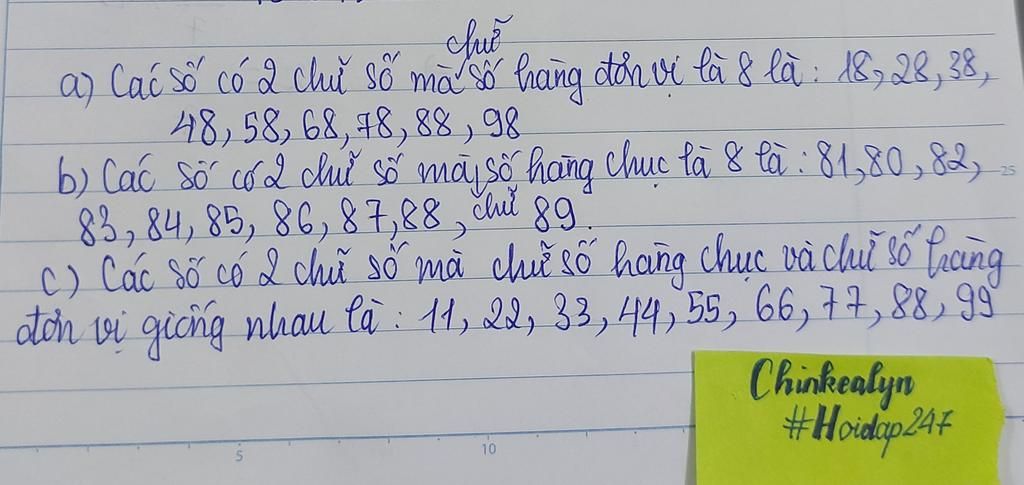 chữ
a) Các số có 2 chữ số mà số hàng đơn vị là 8 là: 18, 28, 38,
48, 58, 68, 78, 88, 98
b) Các số có 2 chữ số mà số hàng chục là 8 là: 81, 80, 82,
83, 84, 85, 86, 87, 88, chữ 89.
c) Các số có 2 chữ số mà chữ số hàng chục và chữ số hàng
đơn vị giống nhau là: 11, 22, 33, 44, 55, 66, 77, 88, 99
Chinkealyn
#Hoidap247
25
5
10